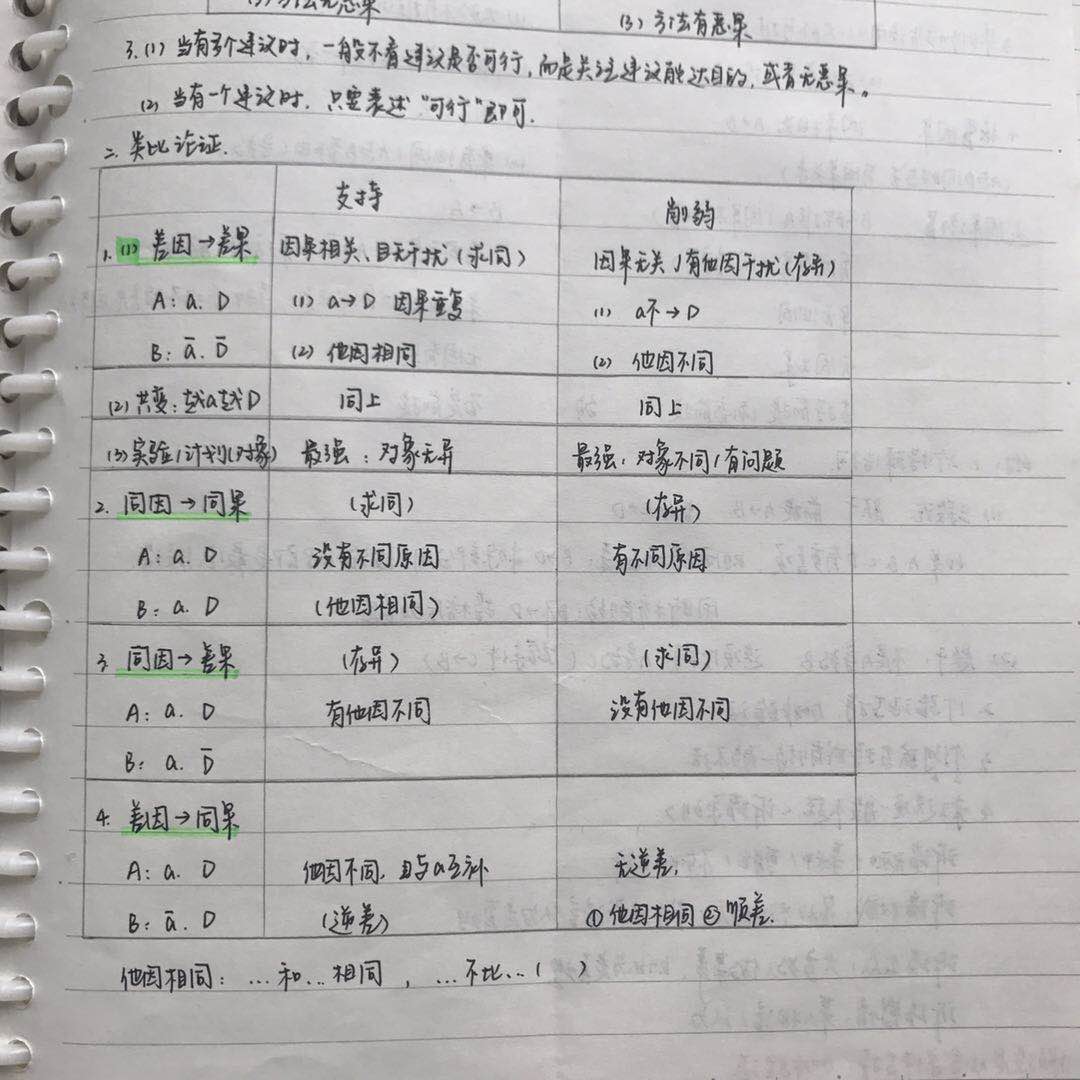 (3) 方法无恶果
(3) 方法有恶果
3.(1) 当有多个建议时,一般不看建议是否可行,而是关注建议能达目的,或者无恶果。
(2) 当有一个建议时.只要表述"可行"即可.
二.类比论证.
支持 削弱
1.(1) 差因→差果 因果相关、且无干扰(求同) 因果无关/有他因干扰(存异)
A: a. D (1) a→D 因果重复 (1) a不→D
B: ā. D̄ (2) 他因相同 (2) 他因不同
(2) 共变:越a越D 同上 同上
(3)实验/计划(对象) 最强:对象无异 最强:对象不同/有问题
2. 同因→同果 (求同) (存异)
A: a. D 没有不同原因 有不同原因
B: a. D (他因相同)
3. 同因→差果 (存异) (求同)
A: a. D 有他因不同 没有他因不同
B: a. D̄
4. 差因→同果
A: a. D 他因不同.且与a互补 无逆差,
B: ā. D (逆差) ①他因相同 ②顺差.
他因相同:…和…相同,…不比…( )